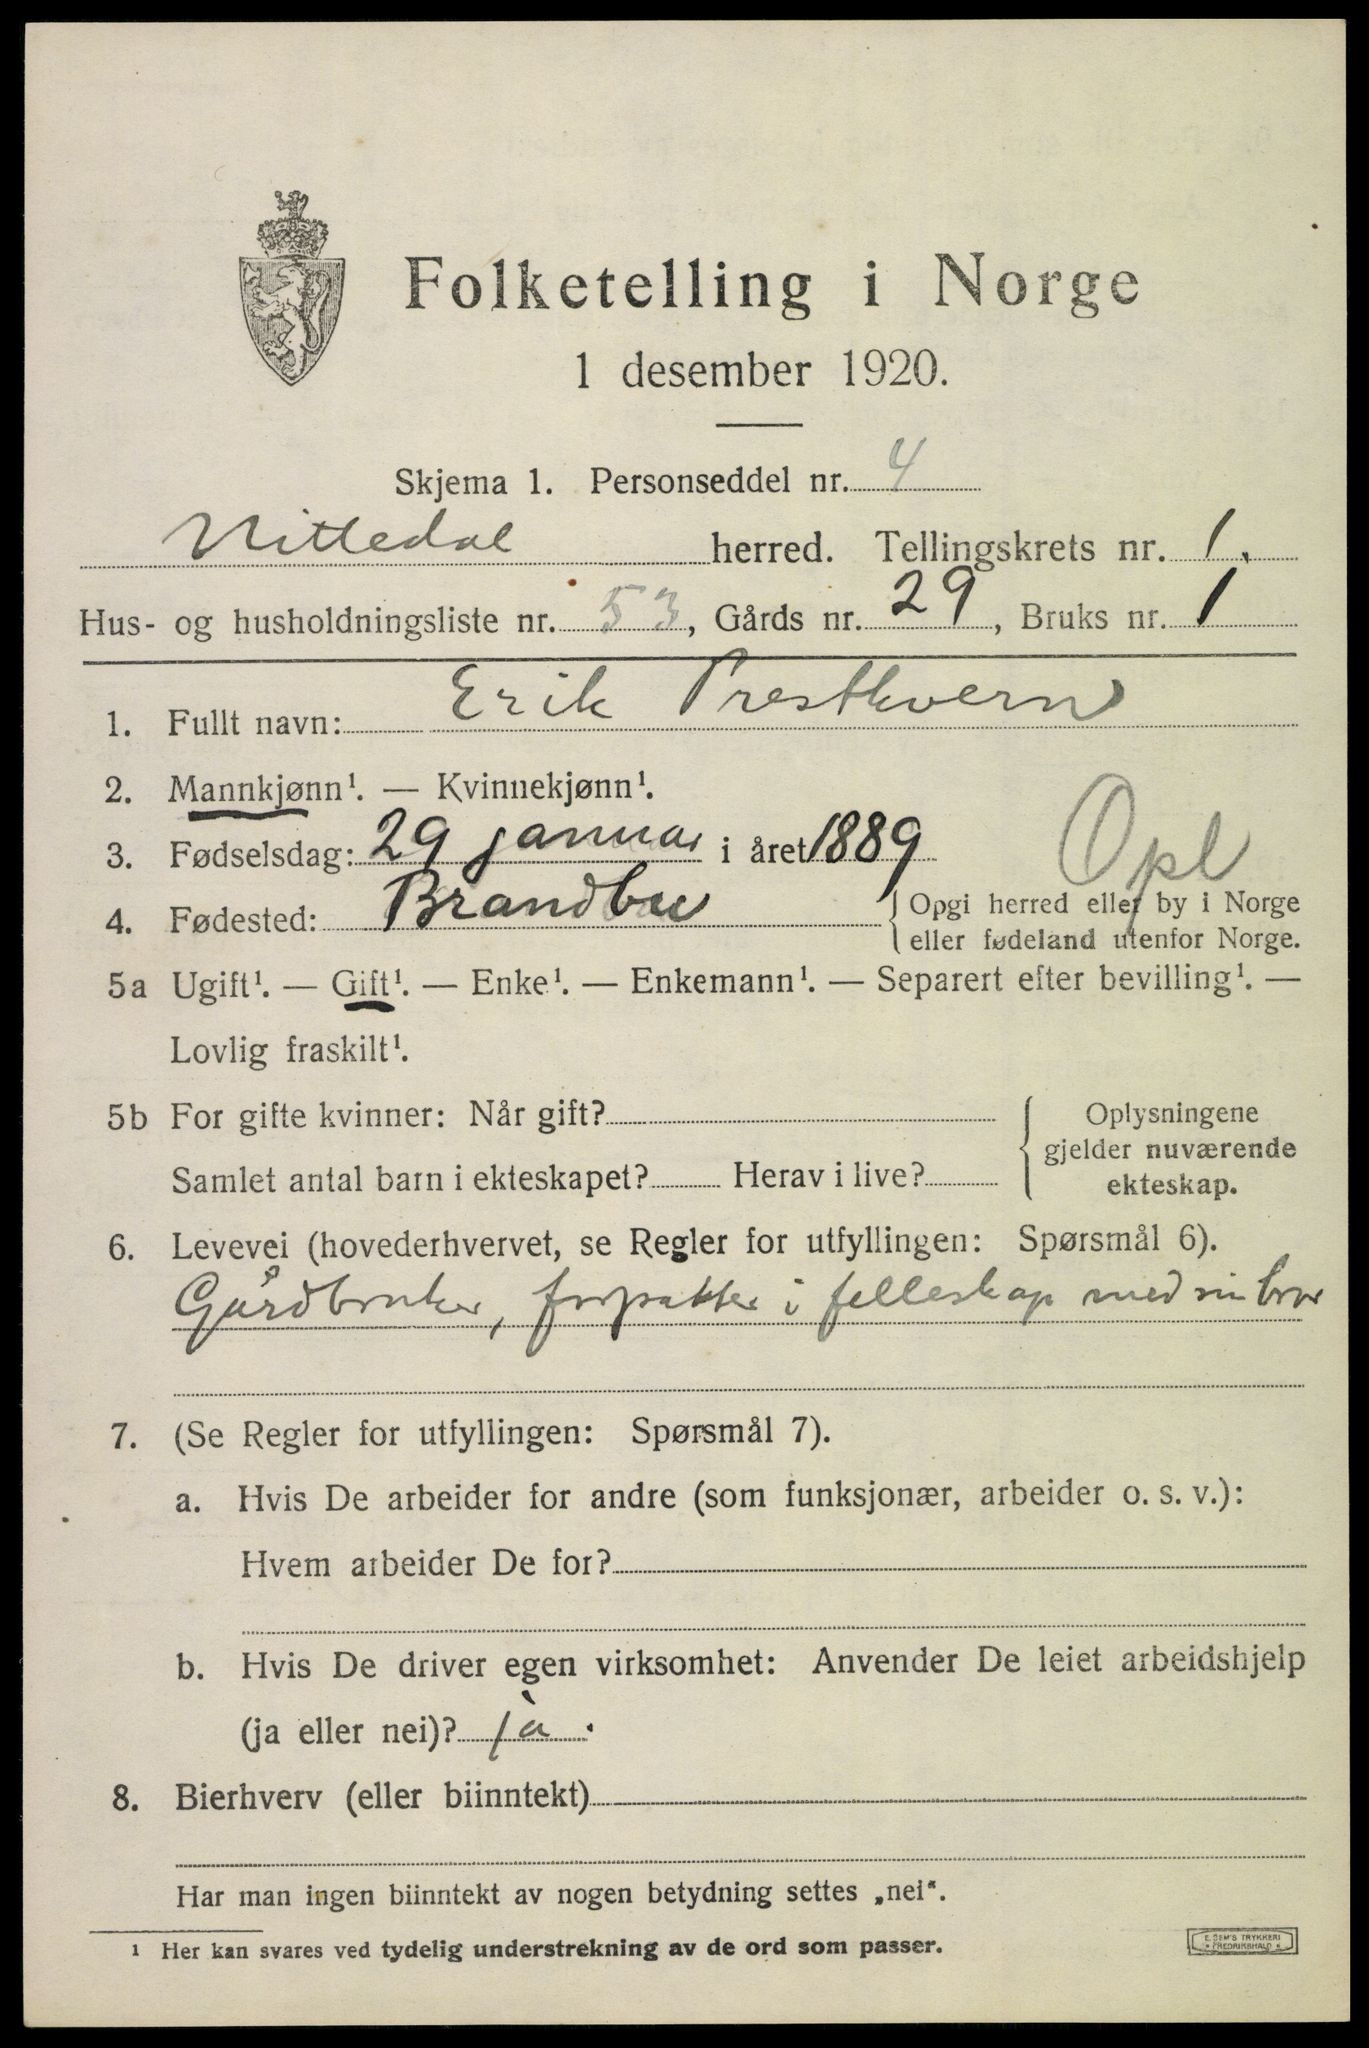 Folketelling i Norge
1 desember 1920.
Skjema 1. Personseddel nr. 4
Nittedal herred. Tellingskrets nr. 1.
Hus- og husholdningsliste nr. 53, Gårds nr. 29, Bruks nr. 1
1. Fullt navn: Erik Prestkvern
2. Mannkjønn¹. — Kvinnekjønn¹.
3. Fødselsdag: 29 januar i året 1889
Opl
4. Fødested: Brandbu
Opgi herred eller by i Norge
eller fødeland utenfor Norge.
5a Ugift¹. — Gift¹. — Enke¹. — Enkemann¹. — Separert efter bevilling¹. —
Lovlig fraskilt¹.
5b For gifte kvinner: Når gift?
Samlet antal barn i ekteskapet? Herav i live?
Oplysningene
gjelder nuværende
ekteskap.
6. Levevei (hovederhvervet, se Regler for utfyllingen: Spørsmål 6).
Gårdbruker, forpakter i felleskap med sin bror
7. (Se Regler for utfyllingen: Spørsmål 7).
a. Hvis De arbeider for andre (som funksjonær, arbeider o. s. v.):
Hvem arbeider De for?
b. Hvis De driver egen virksomhet: Anvender De leiet arbeidshjelp
(ja eller nei)? ja.
8. Bierhverv (eller biinntekt)
Har man ingen biinntekt av nogen betydning settes „nei“.
¹ Her kan svares ved tydelig understrekning av de ord som passer.
E. SEM'S TRYKKERI
FREDRIKSHALD